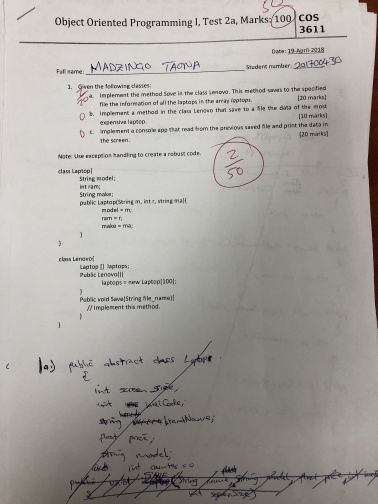 50
Object Oriented Programming I, Test 2a, Marks: 100 COS 3611
Date: 19-April-2018
Full name: MADZINGO TAONA Student number: 201700430
1. Given the following classes:
2/20 a. Implement the method Save in the class Lenovo. This method saves to the specified
file the information of all the laptops in the array laptops. [20 marks]
0 b. Implement a method in the class Lenovo that save to a file the data of the most
expensive laptop. [10 marks]
0 c. Implement a console app that read from the previous saved file and print the data in
the screen. [20 marks]
Note: Use exception handling to create a robust code.
2/50
class Laptop{
String model;
int ram;
String make;
public Laptop(String m, int r, string ma){
model = m;
ram = r;
make = ma;
}
}
class Lenovo{
Laptop [] laptops;
Public Lenovo(){
laptops = new Laptop[100];
}
Public void Save(String file_name){
// Implement this method.
}
}
1a.) public abstract class Laptops
{
int screen size;
int Code;
string brandName;
float price;
string model;
int counter = 0
public void SAVE (String name, string model, float price
int screenSize)